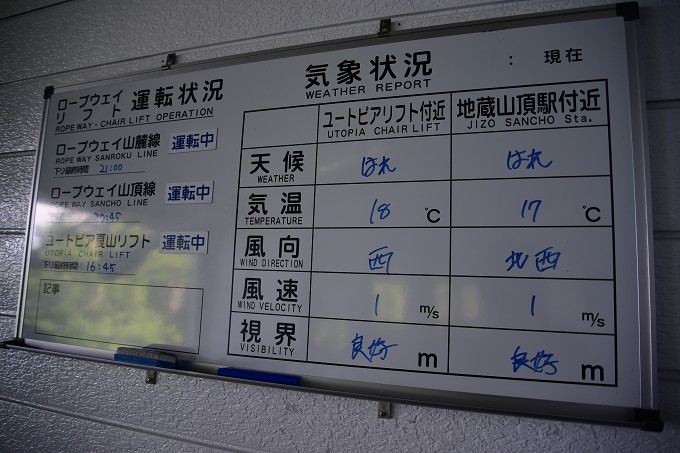 ロープウェイ
リフト 運転状況
ROPE WAY・CHAIR LIFT OPERATION
ロープウェイ山麓線 運転中
ROPE WAY SANROKU LINE
下り最終時間 21:00
ロープウェイ山頂線 運転中
ROPE WAY SANCHO LINE
下り最終時間 20:45
ユートピア夏山リフト 運転中
UTOPIA CHAIR LIFT
下り最終時間 16:45
記事
気象状況 : 現在
WEATHER REPORT
ユートピアリフト付近 地蔵山頂駅付近
UTOPIA CHAIR LIFT JIZO SANCHO Sta.
天候 はれ はれ
WEATHER
気温 18 ℃ 17 ℃
TEMPERATURE
風向 西 北西
WIND DIRECTION
風速 1 m/s 1 m/s
WIND VELOCITY
視界 良好 m 良好 m
VISIBILITY